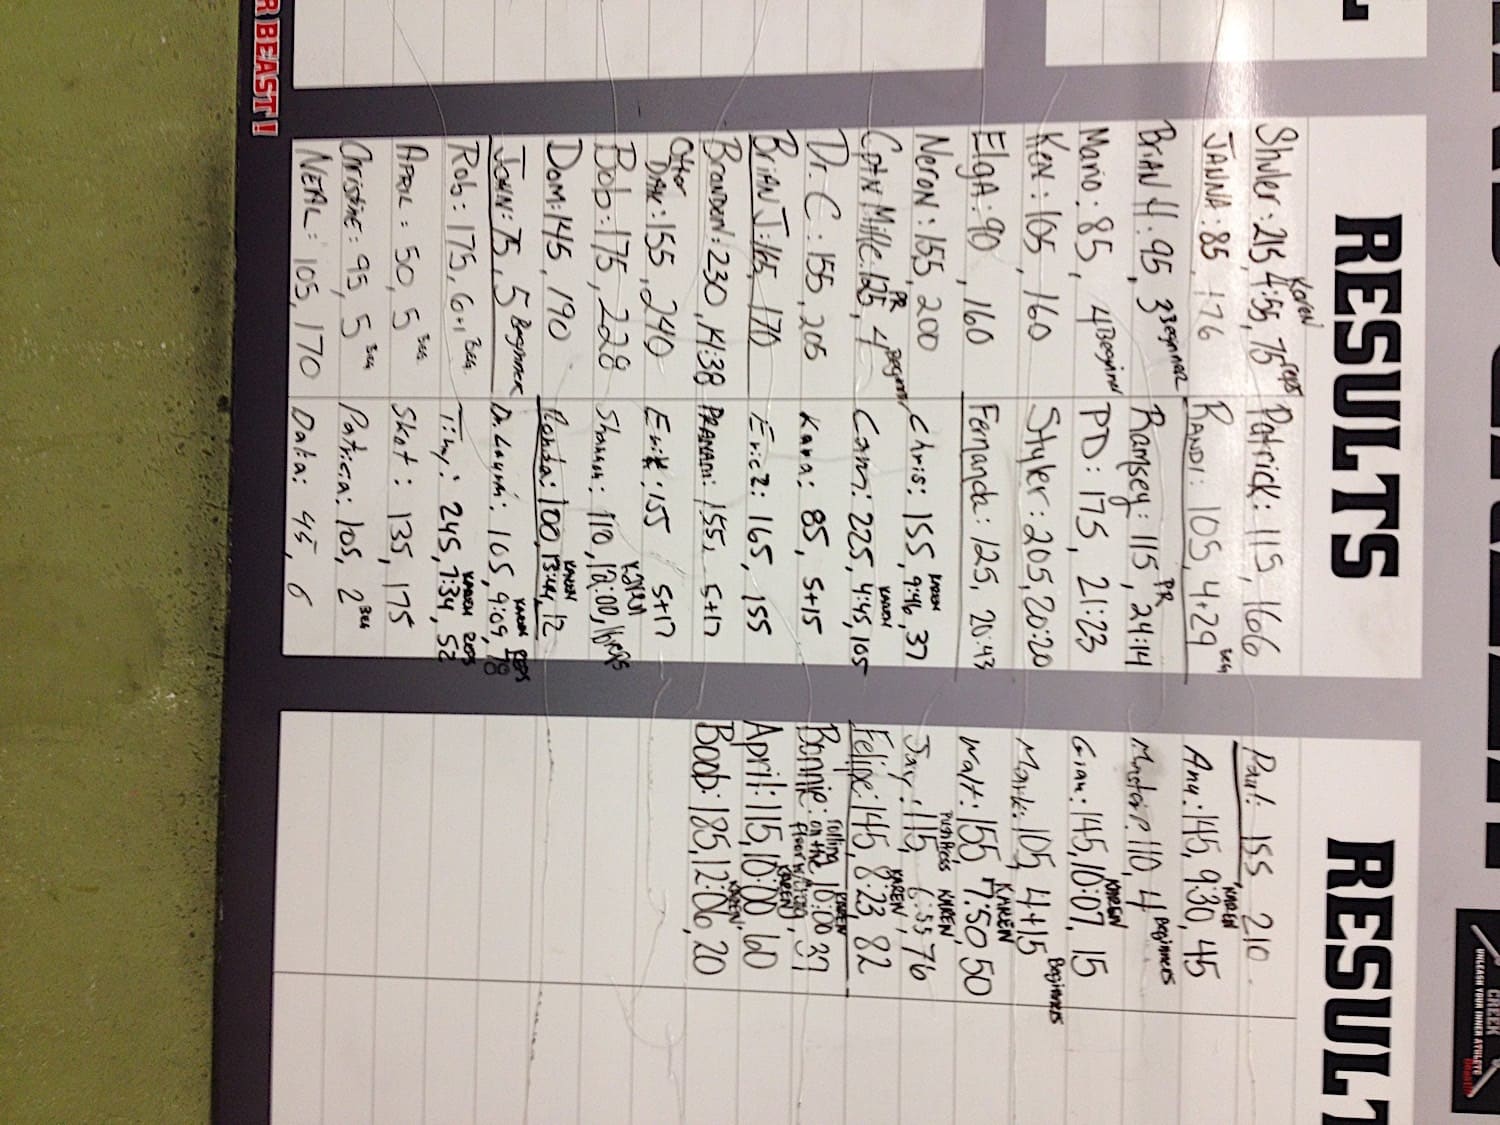 R BEAST!
RESULTS
Shuler: 215, 4:55, 75 reps Karen
JANNA: 85, 176
BRIAN H: 95, 3 Beginner
Mario: 85, 4 Beginner
Ken: 105, 160
Elga: 90, 160
Neron: 155, 200
CAN Mille: 125, PR 4 Beginner
Dr. C: 155, 205
BRIAN J: 165, 170
BRANDEN: 230, 14:38
Otter
DAN: 155, 240
Bob: 175, 228
Dom: 145, 190
JOHN: 75, 5 Beginner
Rob: 175, 6+1 Beg.
APRIL: 50, 5 Beg.
Christine: 95, 5 Beg
NEAL: 105, 170
Patrick: 115, 166
RANDI: 105, 4+29 Beg
Ramsey: 115, PR 24:14
PD: 175, 21:23
Styler: 205, 20:20
Fernanda: 125, 20:43
Chris: 155, 9:46, 37 KAREN
Cam: 225, 4:45, 105 KAREN
Kara: 85, 5+15
Eric Z: 165, 155
PRANAM: 155, 5+17
Erik: 155 5+17
Shannon: 110, 12:00, 16 reps KAREN
Ronda: 100, 13:44, 12 KAREN
105, 9:09, 78 KAREN REPS
245, 7:34, 52 KAREN REPS
Skot: 135, 175
Patricia: 105, 2 Beg
Data: 45, 6
RESULT
Paul: 155, 210
Ana: 145, 9:30, 45 KAREN
110, 4 Beginners
Gian: 145, 10:07, 15 KAREN
Mark: 105, 4+15 Beginners
Walt: 155, 7:50, 50 KAREN
Jay: 115, 6:55 76 Push Press KAREN
Felipe: 145, 8:23, 82 KAREN
Bonnie: rolling on the floor 10:00, 37 KAREN
April: 115, 10:00 60 KAREN
Boob: 185, 12:06, 20 KAREN
CREEK
UNLEASH YOUR INNER ATHLETE